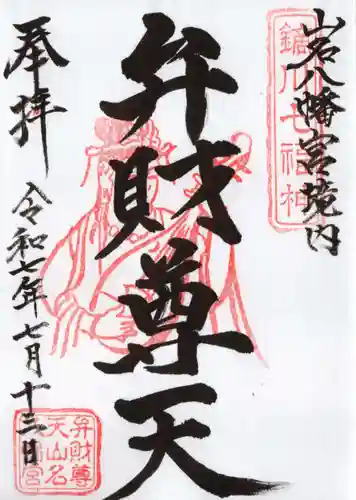 山名八幡宮境内
弁財尊天
奉拝
令和七年七月十三日
七福神
弁財尊
天山名
宮